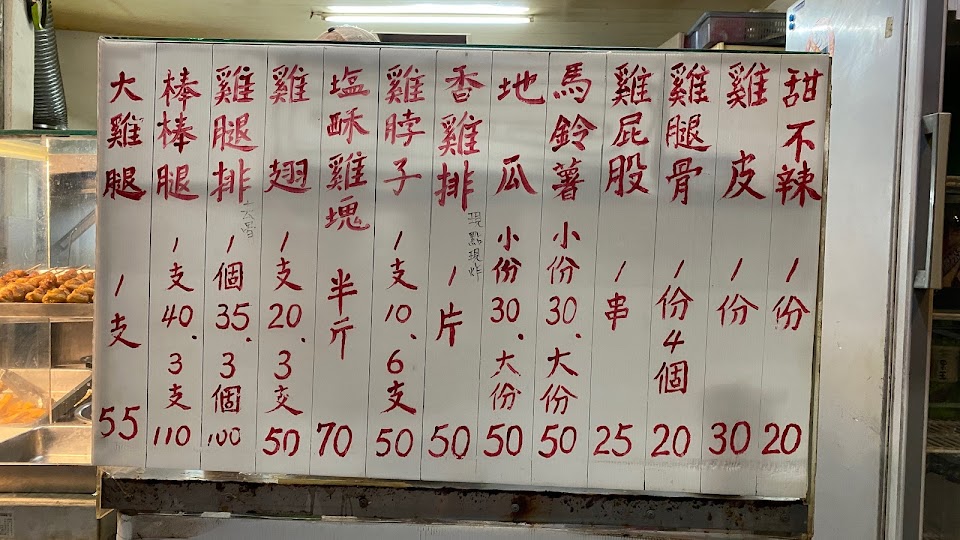 甜不辣 1份 20
雞皮 1份 30
雞腿骨 1份4個 20
雞屁股 1串 25
馬鈴薯 小份30.大份 50
地瓜 小份30.大份 50
香雞排 1片 50
現點現炸
雞脖子 1支10.6支 50
塩酥雞塊 半斤 70
雞翅 1支20.3支 50
雞腿排 1個35.3個 100
去骨
棒棒腿 1支40.3支 110
大雞腿 1支 55